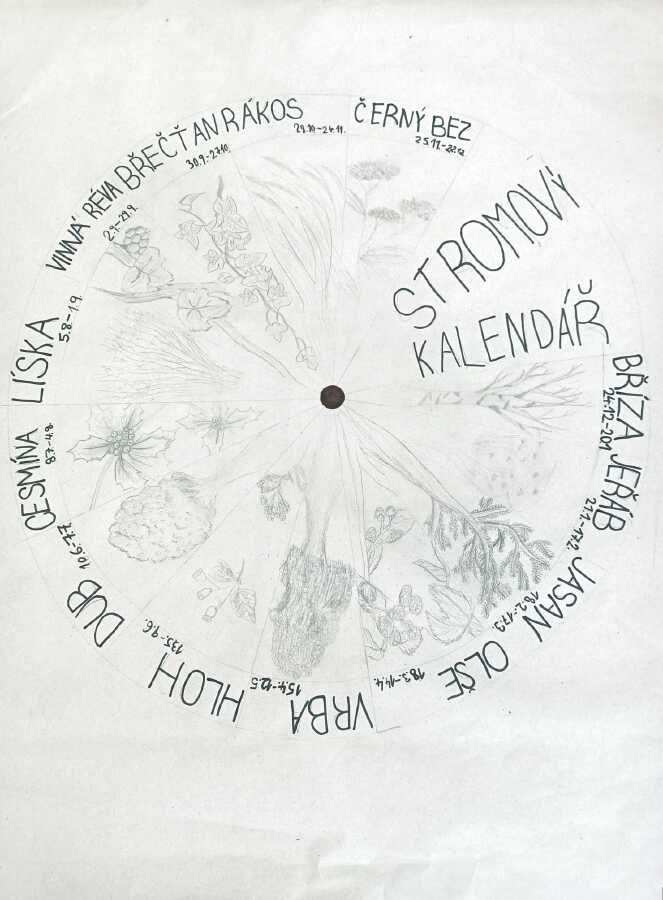 STROMOVÝ
KALENDÁŘ
BŘÍZA
24.12-20.1
JEŘÁB
21.1.-17.2.
JASAN
18.2.-17.3.
OLŠE
18.3.-14.4.
VRBA
15.4.-12.5
HLOH
13.5.-9.6.
DUB
10.6.-7.7
CESMÍNA
8.7.-4.8.
LÍSKA
5.8-1.9.
VINNÁ RÉVA
2.9.-29.9.
BŘEČŤAN
30.9.-27.10.
RÁKOS
ČERNÝ BEZ